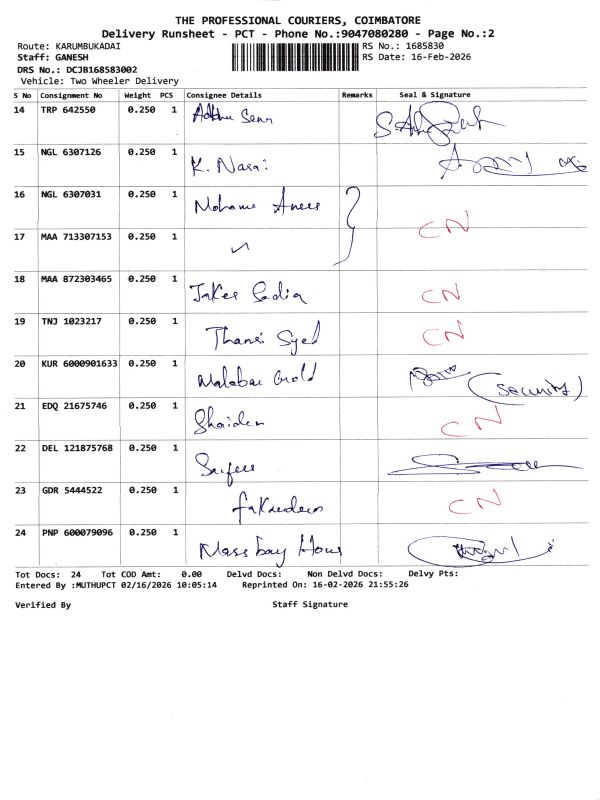 THE PROFESSIONAL COURIERS, COIMBATORE
Delivery Runsheet - PCT - Phone No.:9047080280 - Page No.:2
Route: KARUMBUKADAI RS No.: 1685830
Staff: GANESH RS Date: 16-Feb-2026
DRS No.: DCJB168583002
Vehicle: Two Wheeler Delivery
S No Consignment No Weight PCS Consignee Details Remarks Seal & Signature
14 TRP 642550 0.250 1
15 NGL 6307126 0.250 1 K. Nasai
16 NGL 6307031 0.250 1 Mohame Anees
CN
17 MAA 713307153 0.250 1
18 MAA 872303465 0.250 1 Jaker Sadia CN
19 TNJ 1023217 0.250 1 Thansi Syed CN
20 KUR 6000901633 0.250 1 Malabar Gold (Security)
21 EDQ 21675746 0.250 1 CN
22 DEL 121875768 0.250 1
23 GDR 5444522 0.250 1 CN
24 PNP 600079096 0.250 1 Mass bay Hous
Tot Docs: 24 Tot COD Amt: 0.00 Delvd Docs: Non Delvd Docs: Delvy Pts:
Entered By :MUTHUPCT 02/16/2026 10:05:14 Reprinted On: 16-02-2026 21:55:26
Verified By Staff Signature